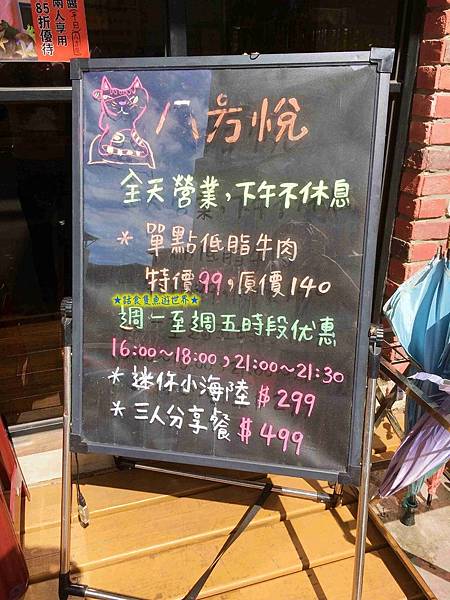 兩人享用
85折優待
八方悅
全天營業,下午不休息
* 單點低脂牛肉
特價99,原價140
★話食隻魚遊世界★
週一至週五時段优惠
16:00~18:00,21:00~21:30
* 迷你小海陸 $299
* 三人分享餐 $499